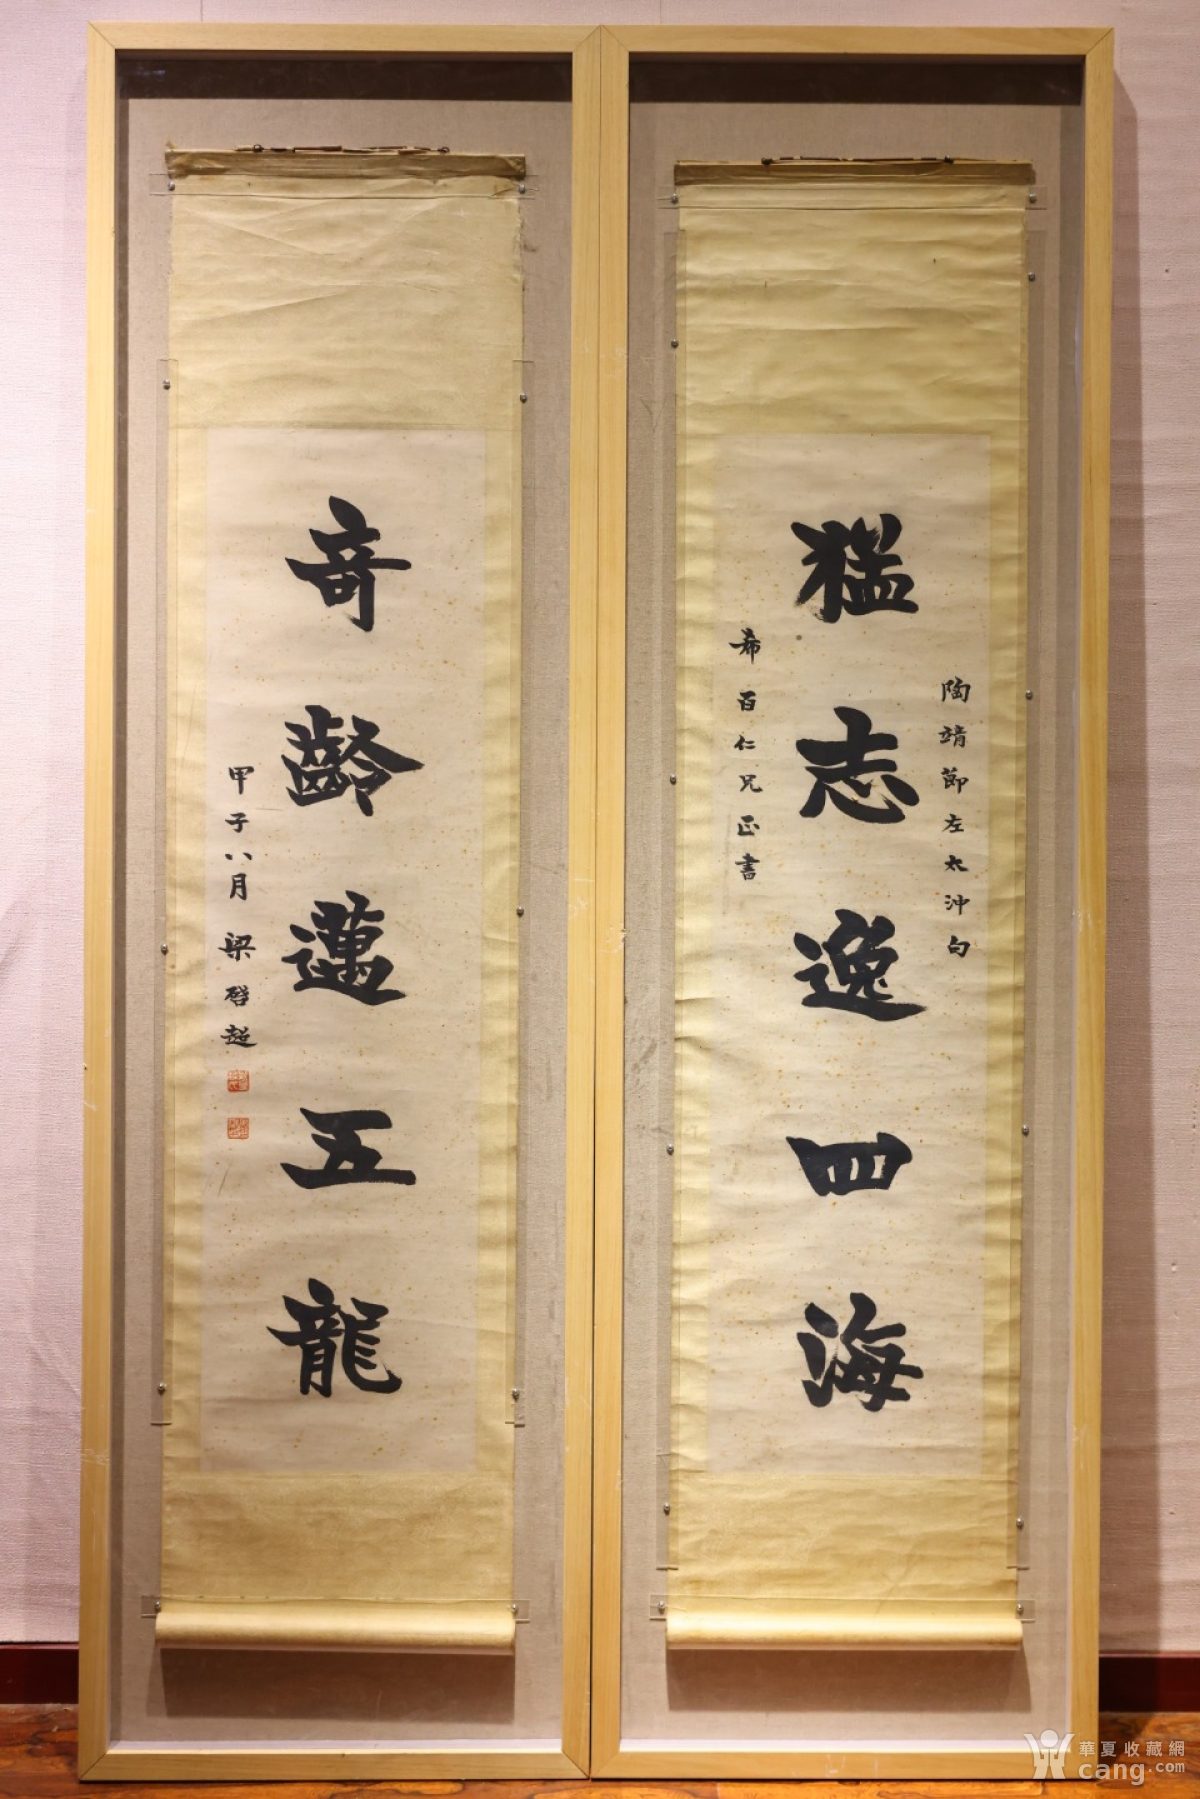 猛志逸四海
陶靖節左太沖句
希百仁兄正書
奇齡邁五龍
甲子八月 梁啓超
華夏收藏網
cang.com